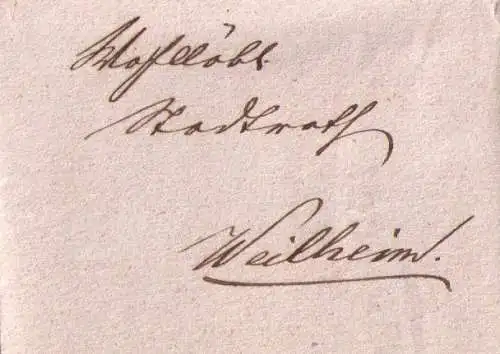 Wohllöbl.
Stadtrath
Weilheim.